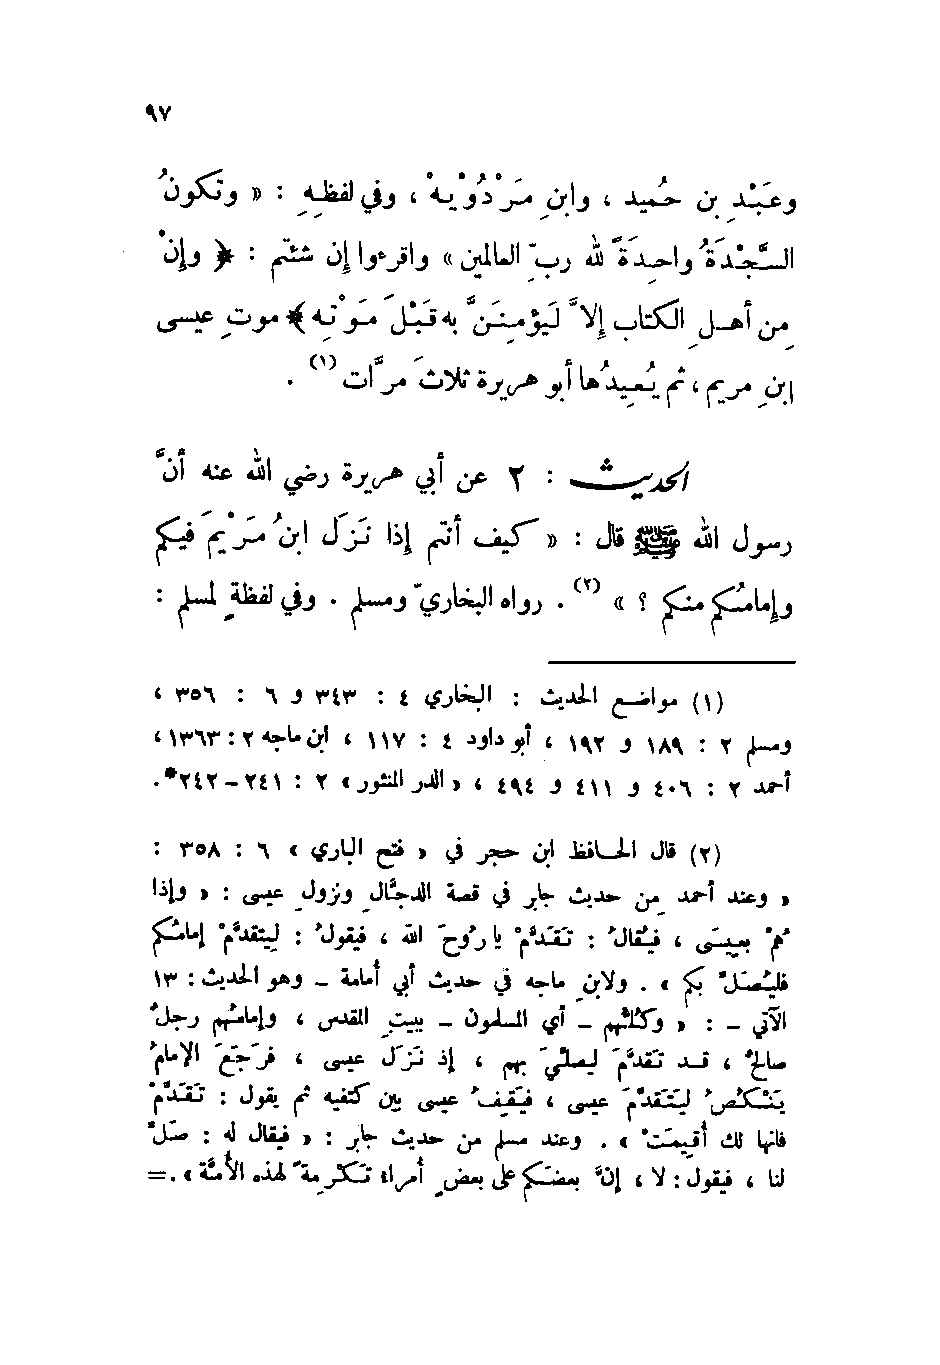 ٩٧
وعَبْدِ بن حُميد ، وابنِ مَرْدُوْيَهْ ، وفي لفظِهِ : « وتكونُ
السَّجْدَةُ واحِدَةً لله ربِّ العالمين » واقرءوا إن شئتم : ﴿ وإنْ
مِن أهلِ الكتاب إلاَّ لَيُؤمِنَنَّ به قَبْلَ مَوْتِه ﴾ موت عيسى
ابنِ مريم ، ثم يُعيدُها أبو هريرة ثلاثَ مرَّات (١) .
الحديث : ٢ عن أبي هريرة رضي الله عنه أنَّ
رسول الله ﷺ قال : « كيف أنتم إذا نَزَلَ ابنُ مَرْيَمَ فيكم
وإمامُكم منكم ؟ » (٢) . رواه البخاريّ ومسلم . وفي لفظةٍ لمسلم :
(١) مواضع الحديث : البخاري ٤ : ٣٤٣ و ٦ : ٣٥٦ ،
ومسلم ٢ : ١٨٩ و ١٩٢ ، أبو داود ٤ : ١١٧ ، ابن ماجه ٢ : ١٣٦٣ ،
أحمد ٢ : ٤٠٦ و ٤١١ و ٤٩٤ ، « الدر المنثور » ٢ : ٢٤١ – ٢٤٢* .
(٢) قال الحافظ ابن حجر في « فتح الباري » ٦ : ٣٥٨ :
« وعند أحمد مِن حديث جابر في قصة الدجَّالِ ونزولِ عيسى : « وإذا
هُمْ بعيسَى ، فيُقالُ : تَقَدَّمْ يا رُوحَ الله ، فيقولُ : لِيتقدَّمْ إمامُكم
فليُصَلِّ بكم » . ولابنِ ماجه في حديث أبي أمامة – وهو الحديث : ١٣
الآتي – : « وكلُّهم – أي المسلمون – ببيتِ المقدس ، وإمامُهم رجلٌ
صالحٌ ، قد تقدَّمَ ليصلّيَ بهم ، إذ نَزَلَ عيسى ، فرَجَعَ الإمامُ
يَنْكُصُ لِيَتقدَّمَ عيسى ، فيَقِفُ عيسى بين كتفيه ثم يقول : تَقَدَّمْ
فانها لك أُقيمَتْ » . وعند مسلم من حديث جابر : « فيقال له : صَلِّ
لنا ، فيقول : لا ، إنَّ بعضَكم على بعضٍ أمراء تَكْرِمةً لهذه الأمَّة » . =